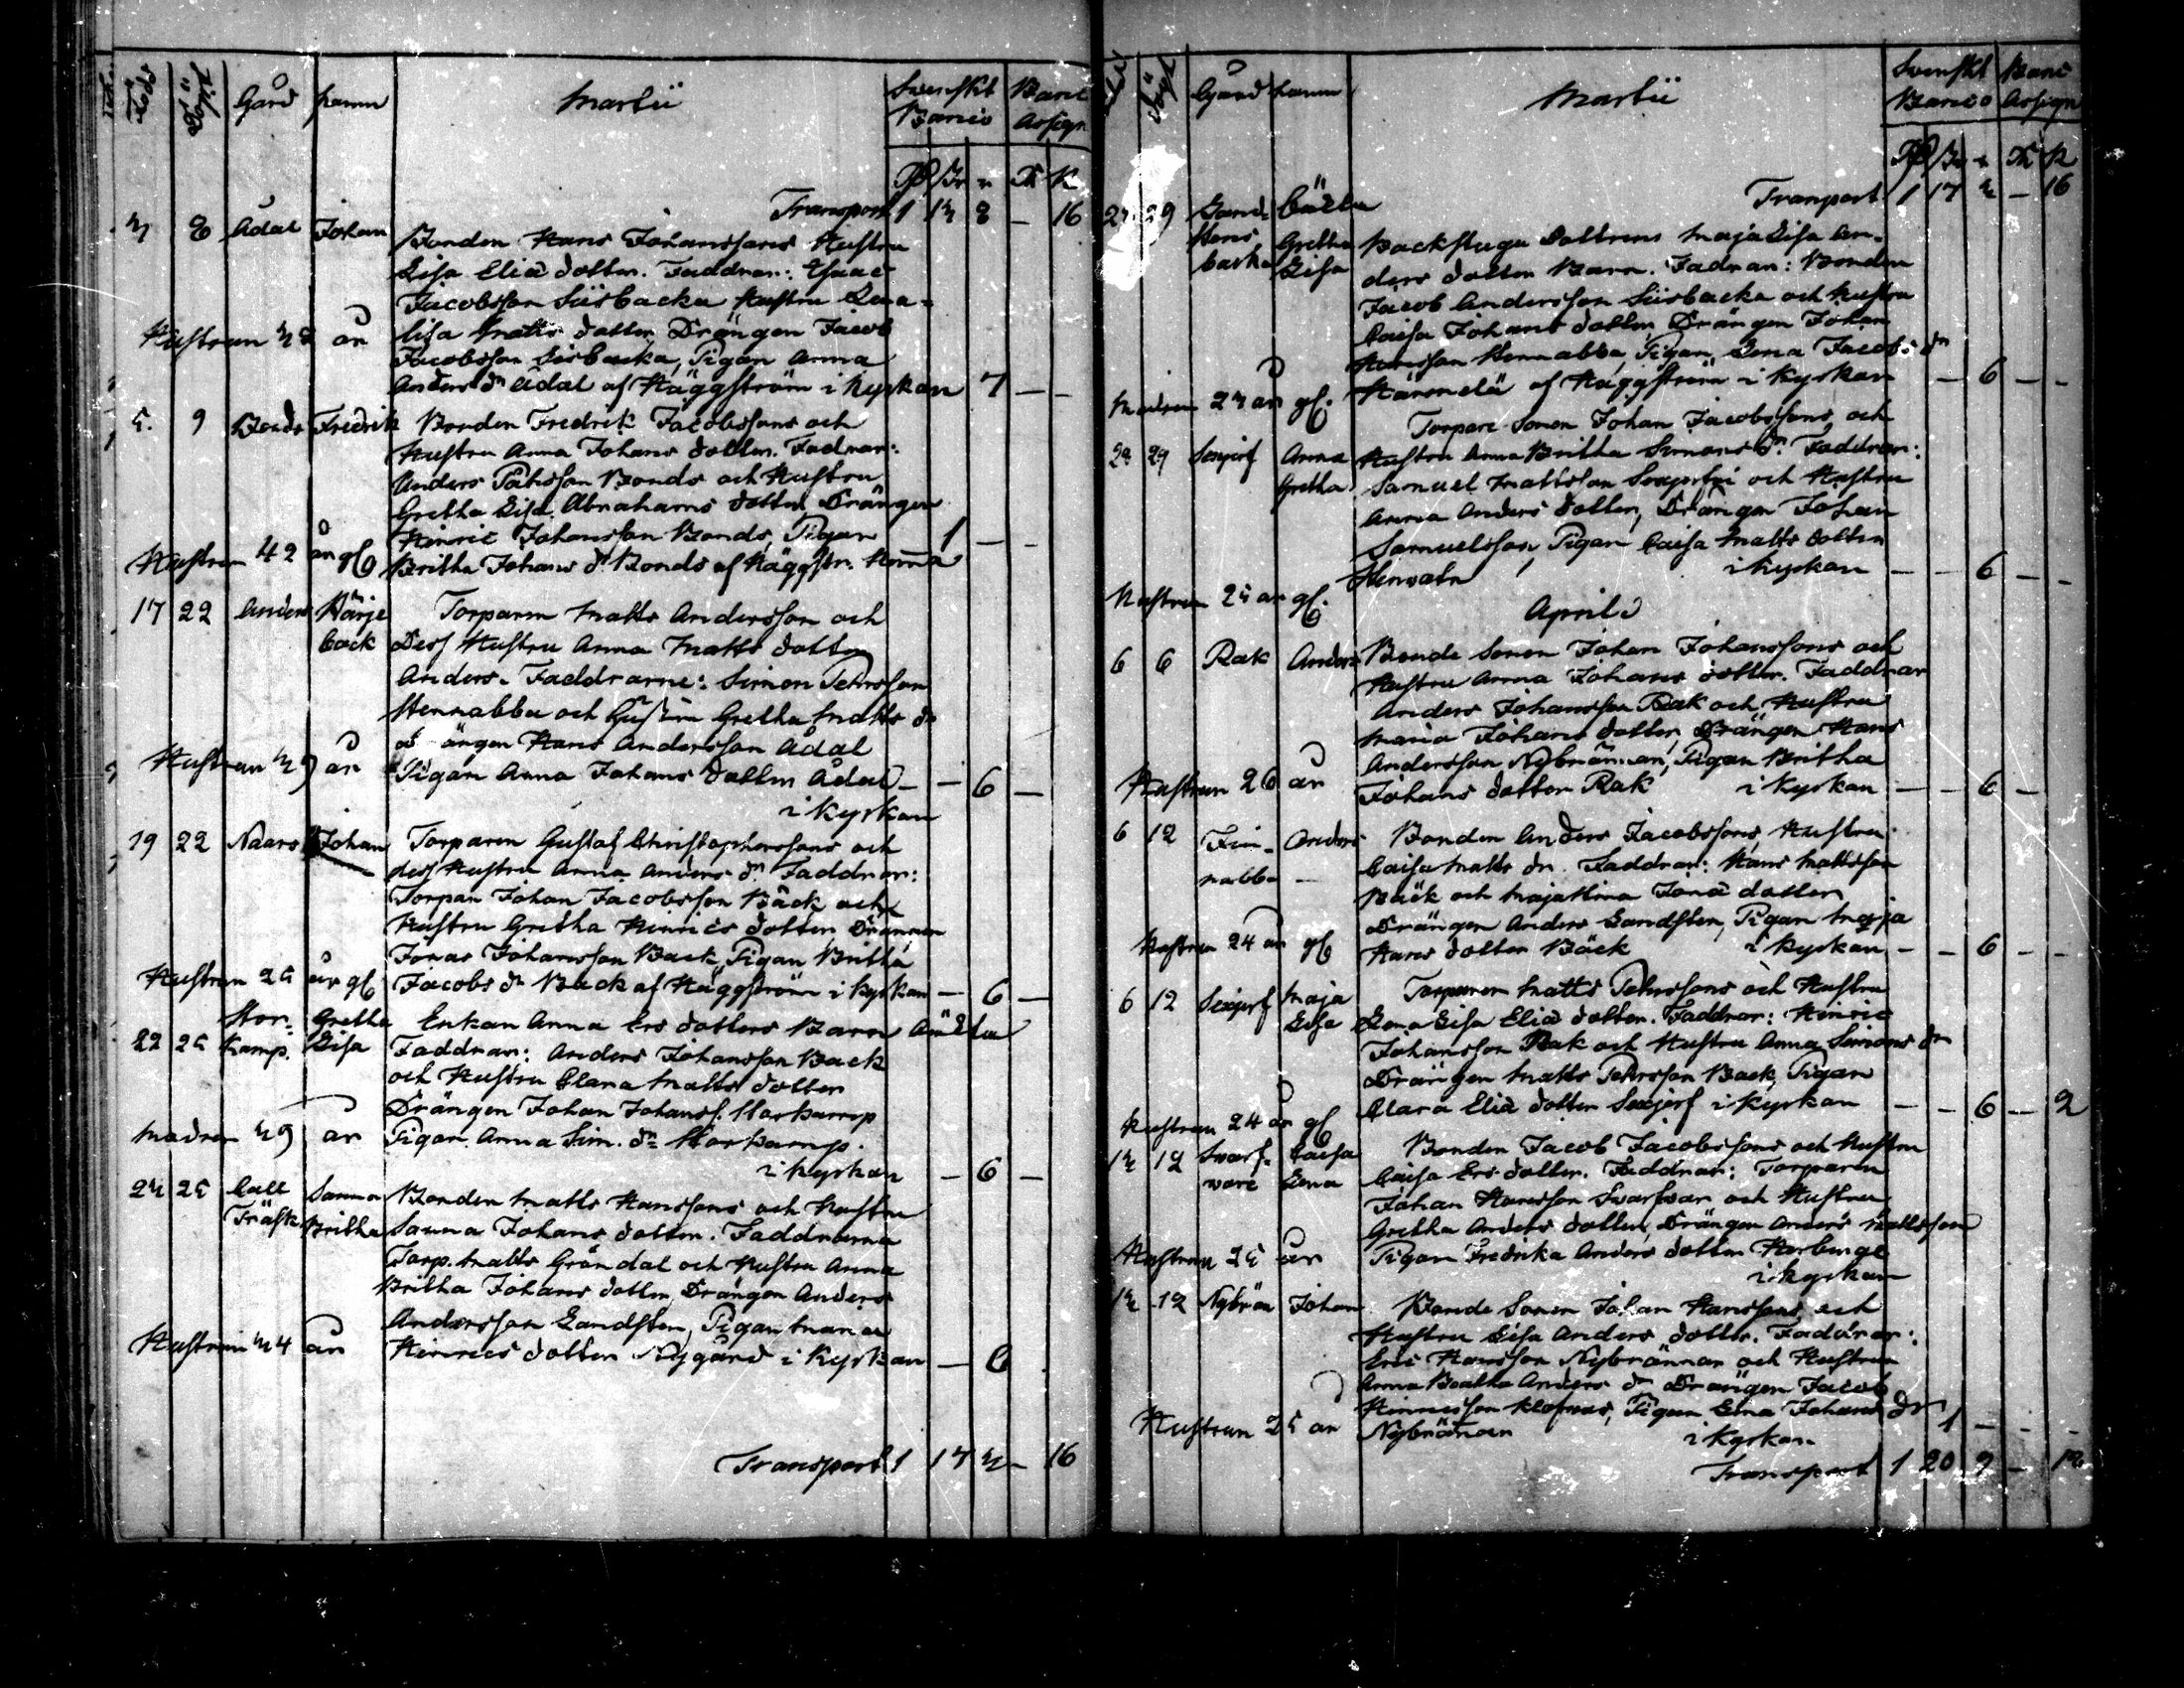 Född Döpt Gård Namn Martii Svenskt Banco Banco Assign
Rd Sk r R K
Transport 1 13 8 — 16
3 8 Ådal Johan Bonden Hans Johanssons Hustru
Lisa Eliæ dotter. Faddrar: Esaac
Jacobsson Siisbacka Hustru Lena
lisa Matts dotter, Drängen Jacob
Hustrun 38 år Jacobsson Siisbacka, Pigan Anna
Anders dr Ådal af Häggström i kyrkan 7 — —
5. 9 Bonds Fredrik Bonden Fredrik Jacobssons och
Hustru Anna Johans dotter. Fadrar:
Anders Pährsson Bonds och Hustru
Gretha Lisa Abrahams dotter, Drängen
Hinric Johansson Bonds, Pigan 1 — —
Hustrun 42 år gl Britha Johans dr Bonds af Häggstr. Hema
17 22 Anders Härje Torparen Matts Andersson och
back Dess Hustru Anna Matts dotter
Anders. Faddrarne: Simon Pehrsson
Hennabba och Hustru Gretha Matts dr
Drängen Hans Andersson Ådal
Hustrun 39 år Pigan Anna Johans dotter Ådal — — 6 —
i kyrkan
19 22 Naars Johan Torparen Gustaf Christophorssons och
dess Hustru Anna Anders dr Faddrar:
Torpan Johan Jacobsson Bäck och
Hustru Gretha Hinrics dotter Drännen
Jonas Johansson Back, Pigan Britha
Hustrun 25 år gl Jacobs dr Back af Häggström i kyrkan — 6 —
Stor- Gretha Enkan Anna Ers dotters Barn oäkta
22 25 kamp. Lisa Faddrar: Anders Johansson Back
och Hustru Clara Matts dotter
Drängen Johan Johanss. Storkamp
Modren 39 år Pigan Anna Sim. dr Storkamp.
i kyrkan — 6 —
23 25 Call Sanna Bonden Matts Hanssons och Hustru
Träsk Britha Sanna Johans dotter. Faddrarna
Torp. Matts Gröndal och Hustru Anna
Britha Johans dotter, Drängen Anders
Andersson Sandsten, Pigan Maria
Hustrun 34 år Hinrics dotter Nygård i kyrkan — 6
Transport 1 17 3 — 16
Döpt Gård Namn Martii Svenskt Banco Banco Assign
Rd Sk r R K
Transport 1 17 3 — 16
27 29 Sand- oäkta
Hens Gretha Backstugu Dottrens Maja Lisa An-
backa Lisa ders dotter Barn. Fadrar: Bonden
Jacob Andersson Siisbacka och Hustru
Caisa Johans dotter, Drängen Johan
Hansson Hennabba, Pigan Lena Jacobs dr
Modren 23 år gl. Häronelä af Häggström i kyrkan — 6 — —
Torpare Sonen Johan Jacobssons och
28 29 Sexjerf Anna Hustru Anna Britha Simons dr. Faddrar:
Gretha Samuel Mattsson Sexjerfvi och Hustru
Anna Anders dotter, Drängen Johan
Samuelsson, Pigan Caisa Matts dotter
i kyrkan — — 6 — —
Hustrun 25 år gl.
April
6 6 Rak Anders Bonde Sonen Johan Johanssons och
Hustru Anna Johans dotter. Faddrar
Anders Johansson Rak och Hustru
Maria Johans dotter, Drängen Hans
Andersson Nybrännan, Pigan Britha
Hustrun 26 år Johans dotter Rak i kyrkan — — 6 —
6 12 Fin- Anders Bonden Anders Jacobssons Hustru
nabba — Caisa Matts dr. Faddrar: Hans Mattsson
Bäck och Maja Stina Jonæ dotter
Drängen Anders Sandsten, Pigan Maja
Hustrun 24 år gl Hans dotter Bäck i kyrkan — — 6 — —
6 12 Sexjerf Maja Torparen Matts Pehrssons och Hustru
Lisa Lena Lisa Eliæ dotter. Faddrar: Hinric
Johansson Rak och Hustru Anna Simons dr
Drängen Matts Pehrsson Back, Pigan
Clara Eliæ dotter Sexjerf i kyrkan — — 6 — 2
Hustrun 24 år gl
13 12 Svarf- Caisa Bonden Jacob Jacobssons och Hustru
vare Lena Caisa Ers dotter. Faddrar: Torparen
Johan Hansson Svarfvar och Hustru
Gretha Anders dotter, Drängen Anders Mattsson
Hustrun 25 år Pigan Fredrika Anders dotter Storbinge
i kyrkan
13 12 Nybrän Johan Bonde Sonen Johan Hanssons och
Hustru Lisa Anders dotter. Faddrar:
Eric Hansson Nybrännan och Hustru
Anna Beatha Anders dr Drängen Jacob
Hinricsson Klofvars, Pigan Lena Johans dr
Hustrun 25 år Nybrännan i kyrkan 1 — — —
Transport 1 20 9 — 18